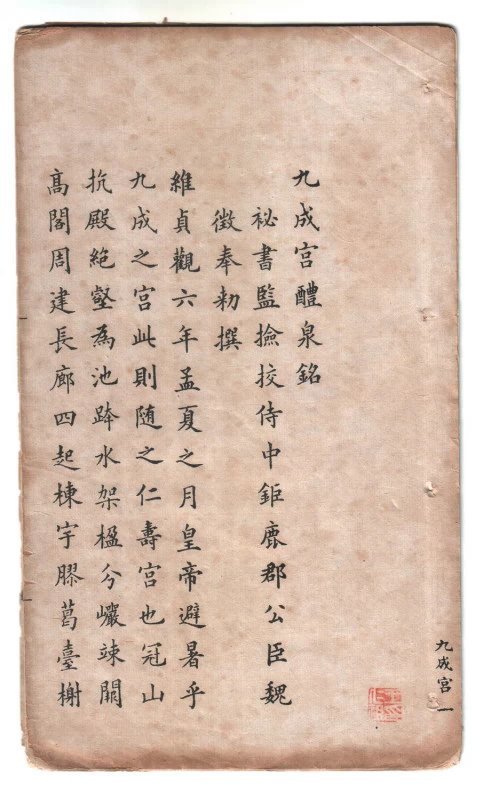 九成宮醴泉銘
祕書監撿挍侍中鉅鹿郡公臣魏
徵奉勑撰
維貞觀六年孟夏之月皇帝避暑乎
九成之宮此則隨之仁壽宮也冠山
抗殿絶壑為池跨水架楹分巗竦闕
高閣周建長廊四起棟宇膠葛臺榭
九成宮 一